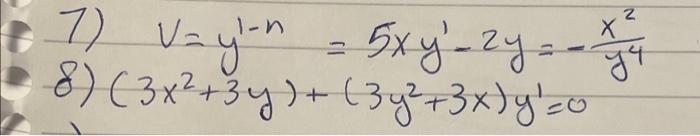 7) V = y^{1-n} = 5xy' - 2y = -\frac{x^2}{y^4}
8) (3x^2+3y)+(3y^2+3x)y'=0